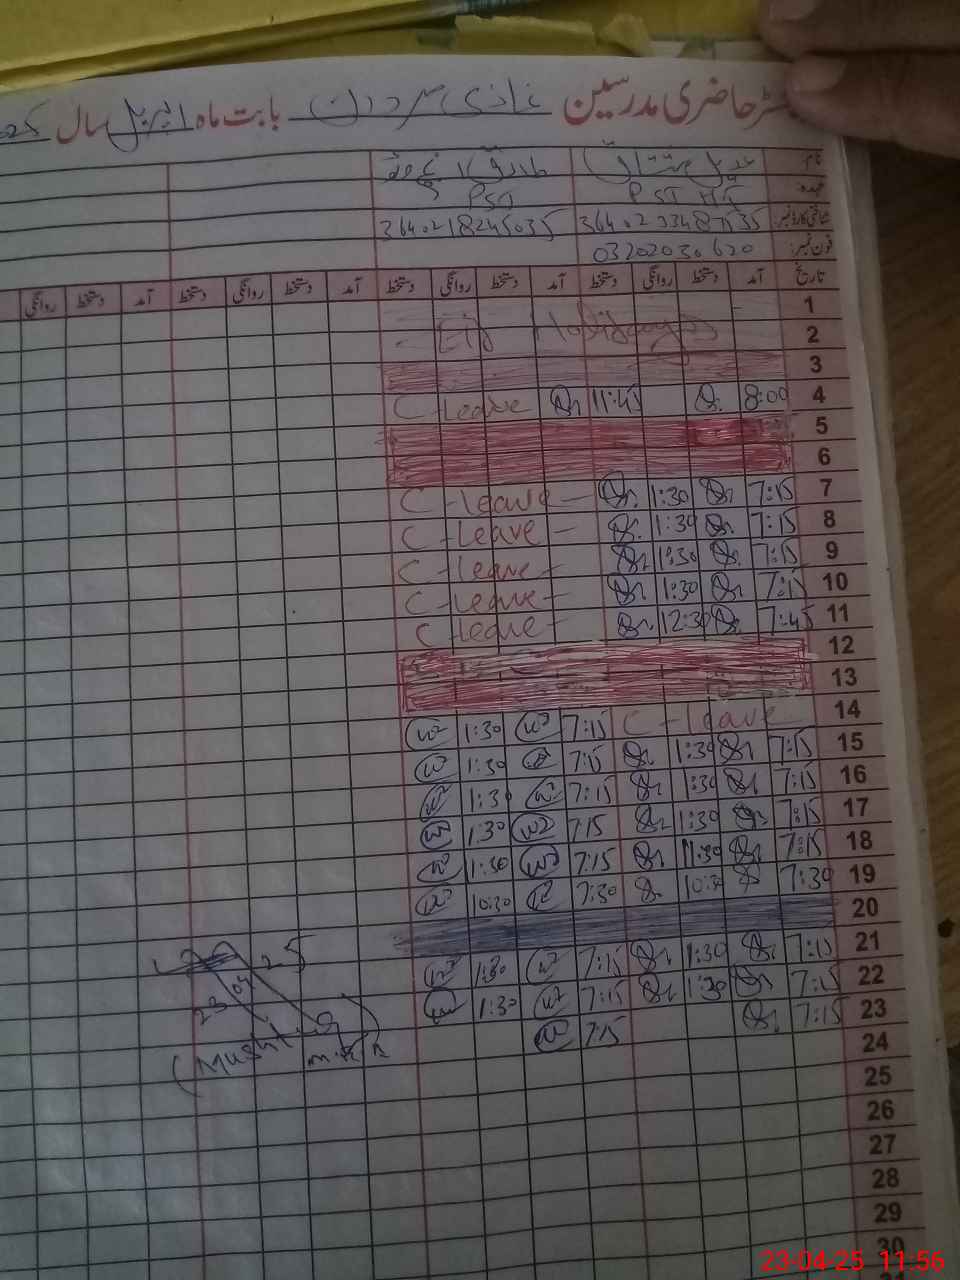 رجسٹر حاضری مدرسین غازی مردان بابت ماہ اپریل سال 2025
نام
طارق محمود
عہدہ PST HT PST
شناختی کارڈ نمبر: 3640218245035
فون نمبر: 03202030620
تاریخ آمد دستخط روانگی دستخط آمد دستخط روانگی دستخط آمد دستخط روانگی دستخط آمد دستخط روانگی
1
2 Eid Holidays
3
4 8:00 11:45 C-Leave
5
6
7 7:15 1:30 C-Leave
8 7:15 1:30 C-Leave
9 7:15 1:30 C-Leave
10 7:15 1:30 C-Leave
11 7:45 12:30 C-Leave
12
13
14 C-Leave 7:15 1:30
15 7:15 1:30 7:15 1:30
16 7:15 1:30 7:15 1:30
17 7:15 1:30 7:15 1:30
18 7:15 11:30 7:15 1:30
19 7:30 10:30 7:30 10:30
20
21 7:15 1:30 7:15 1:30
22 7:15 1:30 7:15 1:30
23 7:15 7:15
24
25
26
27
28
29
30
23 04 25
23-04-25 11:56